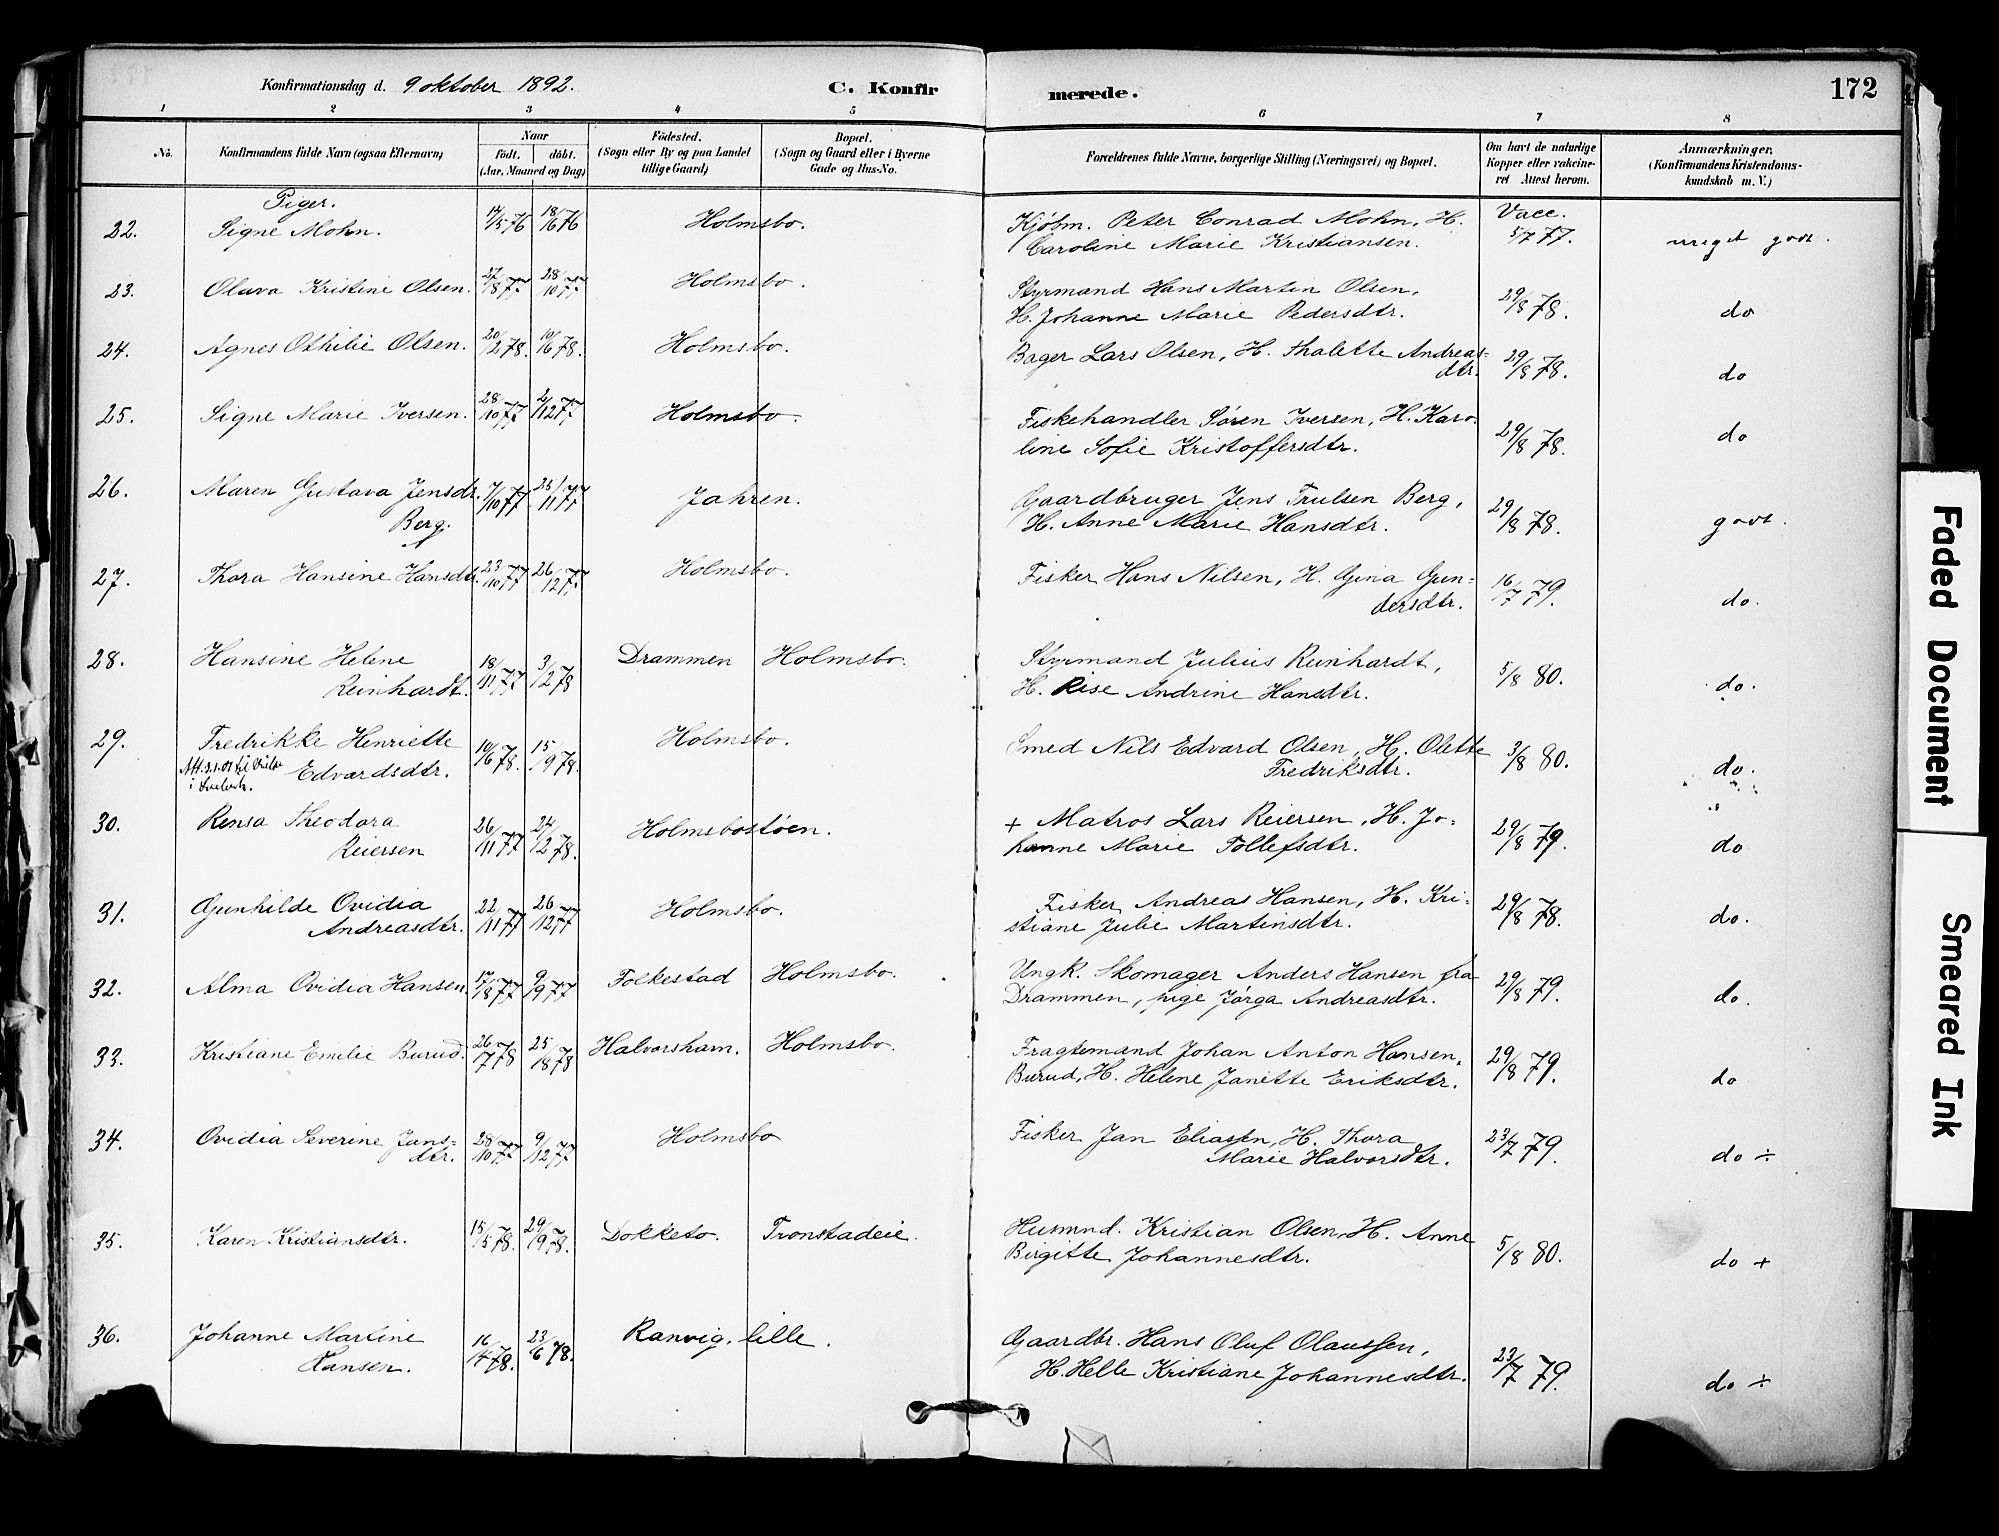 Konfirmationsdag d. 9 oktober 1892. C. Konfirmerede. 172
1 2 3 4 5 6 7 8
No. Konfirmandens fulde Navn (ogsaa Efternavn) Naar födt. döbt. (Aar, Maaned og Dag) Födested. (Sogn eller By og paa Landet tillige Gaard) Bopæl. (Sogn og Gaard eller i Byerne Gade og Hus-No. Forældrenes fulde Navne, borgerlige Stilling (Næringsvei) og Bopæl. Om havt de naturlige Kopper eller vakcineret Attest herom. Anmærkninger, (Konfirmandens Kristendomskundskab m. V.)
Piger.
22. Signe Mohn. 17/5 76 18/6 76 Holmsbo. Kjøbm. Peter Conrad Mohn, H. Vacc.
Caroline Marie Kristiansen. 5/7 77. meget godt.
23. Olava Kristine Olsen. 27/8 77 28/10 77 Holmsbo. Styrmand Hans Martin Olsen,
H. Johanne Marie Pedersdtr. 29/8 78. do
24. Agnes Othilie Olsen. 20/2 78. 10/6 78. Holmsbo. Bager Lars Olsen, H. Thalette Andreas=
dtr. 29/8 78. do
25. Signe Marie Iversen. 28/10 77 2/12 77 Holmsbo. Fiskehandler Søren Iversen, H. Karo=
line Sofie Kristoffersdtr. 29/8 78. do
26. Maren Gustava Jensdr. 7/10 77 25/11 77 Jahren. Gaardbruger Jens Trulsen Berg,
Berg. H. Anne Marie Hansdtr. 29/8 78. godt.
27. Thora Hansine Hansdtr. 23/10 77 26/12 77 Holmsbo. Fisker Hans Nilsen, H. Gina Gun=
dersdtr. 16/7 79. do.
28. Hansine Helene 18/11 77 3/2 78 Drammen Holmsbo. Styrmand Julius Reinhardt,
Reinhardt. H. Rise Andrine Hansdtr. 5/8 80. do.
29. Fredrikke Henriette 10/6 78. 15/9 78. Holmsbo. Smed Nils Edvard Olsen, H. Olette
Att. 3.1.01 til
Edvardsdtr. Fredriksdtr. 3/8 80. do.
30. Rensa Theodora 26/11 77 24/2 78. Holmsbostøen. + Matros Lars Reiersen, H. Jo=
Reiersen hanne Marie Tollefsdtr. 29/8 79. do
31. Gunhilde Ovidia 22/11 77 26/12 77 Holmsbo. Fisker Andreas Hansen, H. Kri=
Andreasdtr. stiane Julie Martinsdtr. 29/8 78. do.
32. Alma Ovidia Hansen. 17/8 77 9/9 77 Folkestad Holmsbo. Ungk. Skomager Anders Hansen fra
Drammen, pige Jørga Andreasdtr. 29/8 79. do.
33. Kristiane Emilie Burud. 26/7 78 25/8 78 Halvorshavn. Holmsbo. Fragtemand Johan Anton Hansen
Burud, H. Helene Janette Eriksdtr. 29/8 79. do
34. Ovidia Severine Jans= 28/10 77 9/12 77 Holmsbo Fisker Jan Eliassen, H. Thora
dtr. Marie Halvorsdtr. 23/7 79. do ÷
35. Karen Kristiansdtr. 15/5 78. 29/9 78. Dokketo. Tronstadeie. Husmnd. Kristian Olsen, H. Anne
Birgitte Johannesdtr. 5/8 80. do +
36. Johanne Martine 16/4 78. 23/6 78. Ranvig, lille. Gaardbr. Hans Oluf Olaussen,
Hansen. H. Helle Kristiane Johannesdtr. 23/7 79. do ÷
Faded Document
Smeared Ink